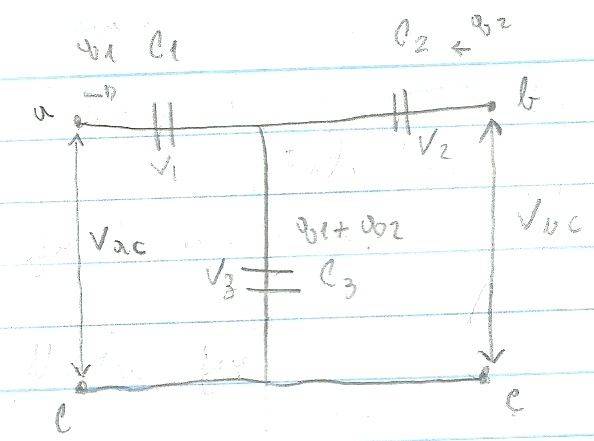 q1 C1 C2 ← q2
→
a b
V1 V2
Vac q1+q2 Vbc
V3 C3
c c